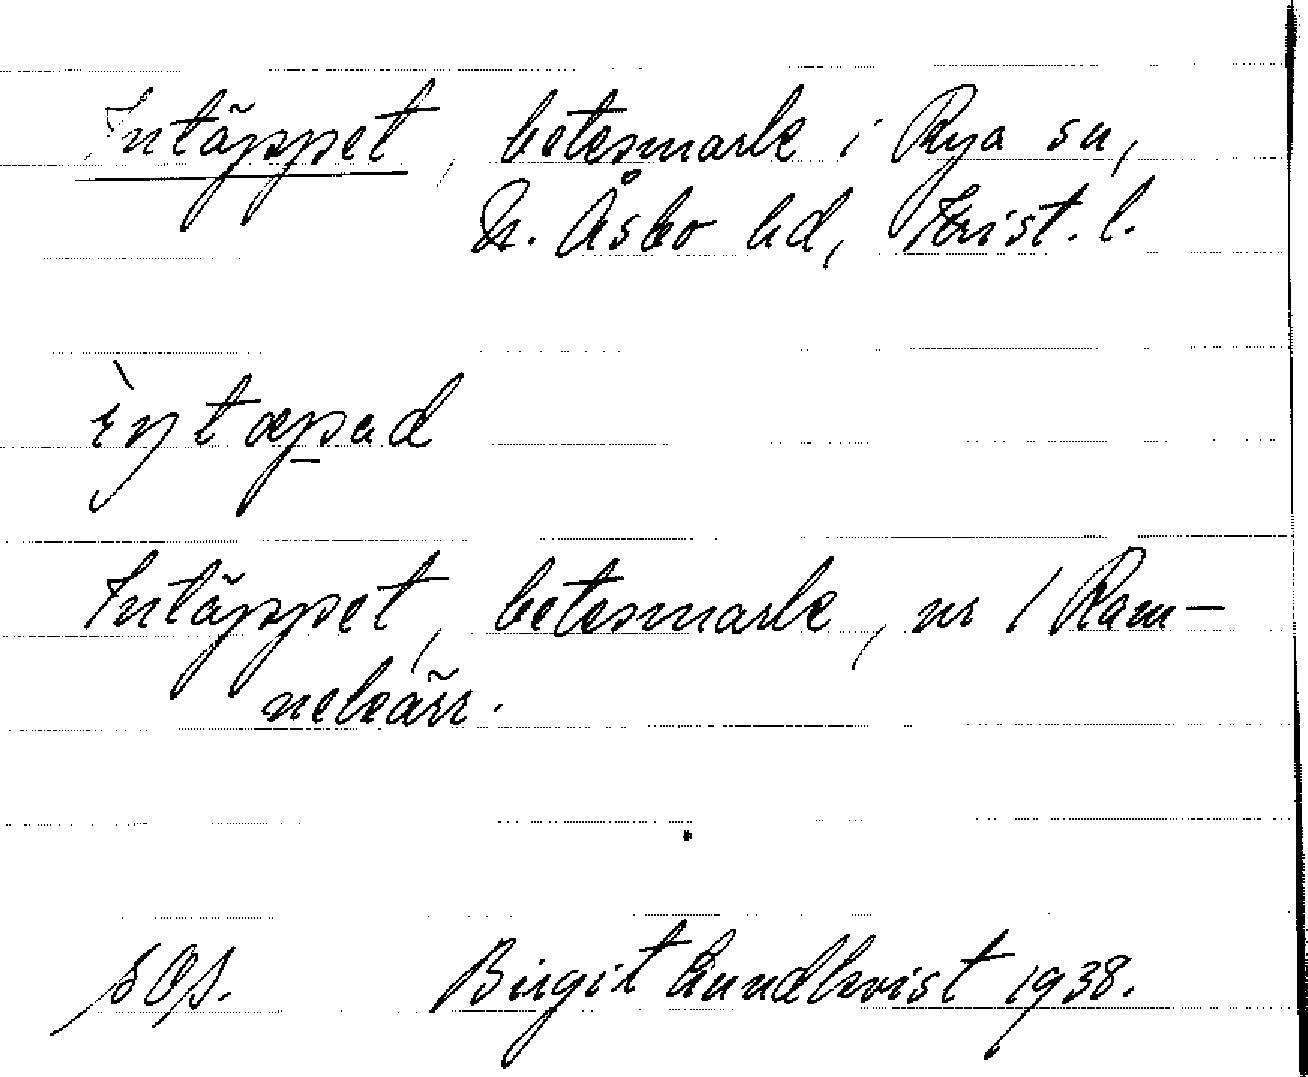 Intäppet, betesmark i Rya sn,
N. Åsbo hd, Krist. l.
Intäppet, betesmark, nr 1 Ram-
nekärr.
Birgit Lundkvist 1938.